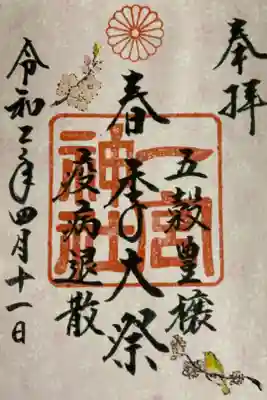 奉拝
五穀豊穣
春季大祭
疫病退散
令和三年四月十一日
一宮神社